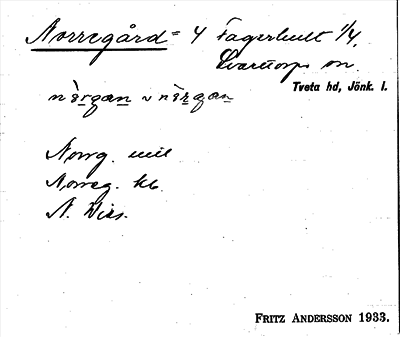 Norregård = 4 Fagerhult 1/4,
Svarttorps sn.
Tveta hd, Jönk. l.
nòrgan v nòrgan
Norrg. mtl
Norreg. kb.
N. Hfs.
FRITZ ANDERSSON 1933.